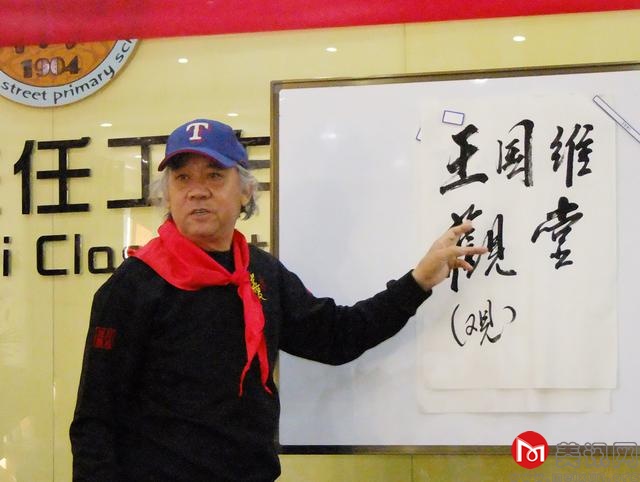 1904
street primary sc
任工
i Clas
T
王国维
觀堂
(观)